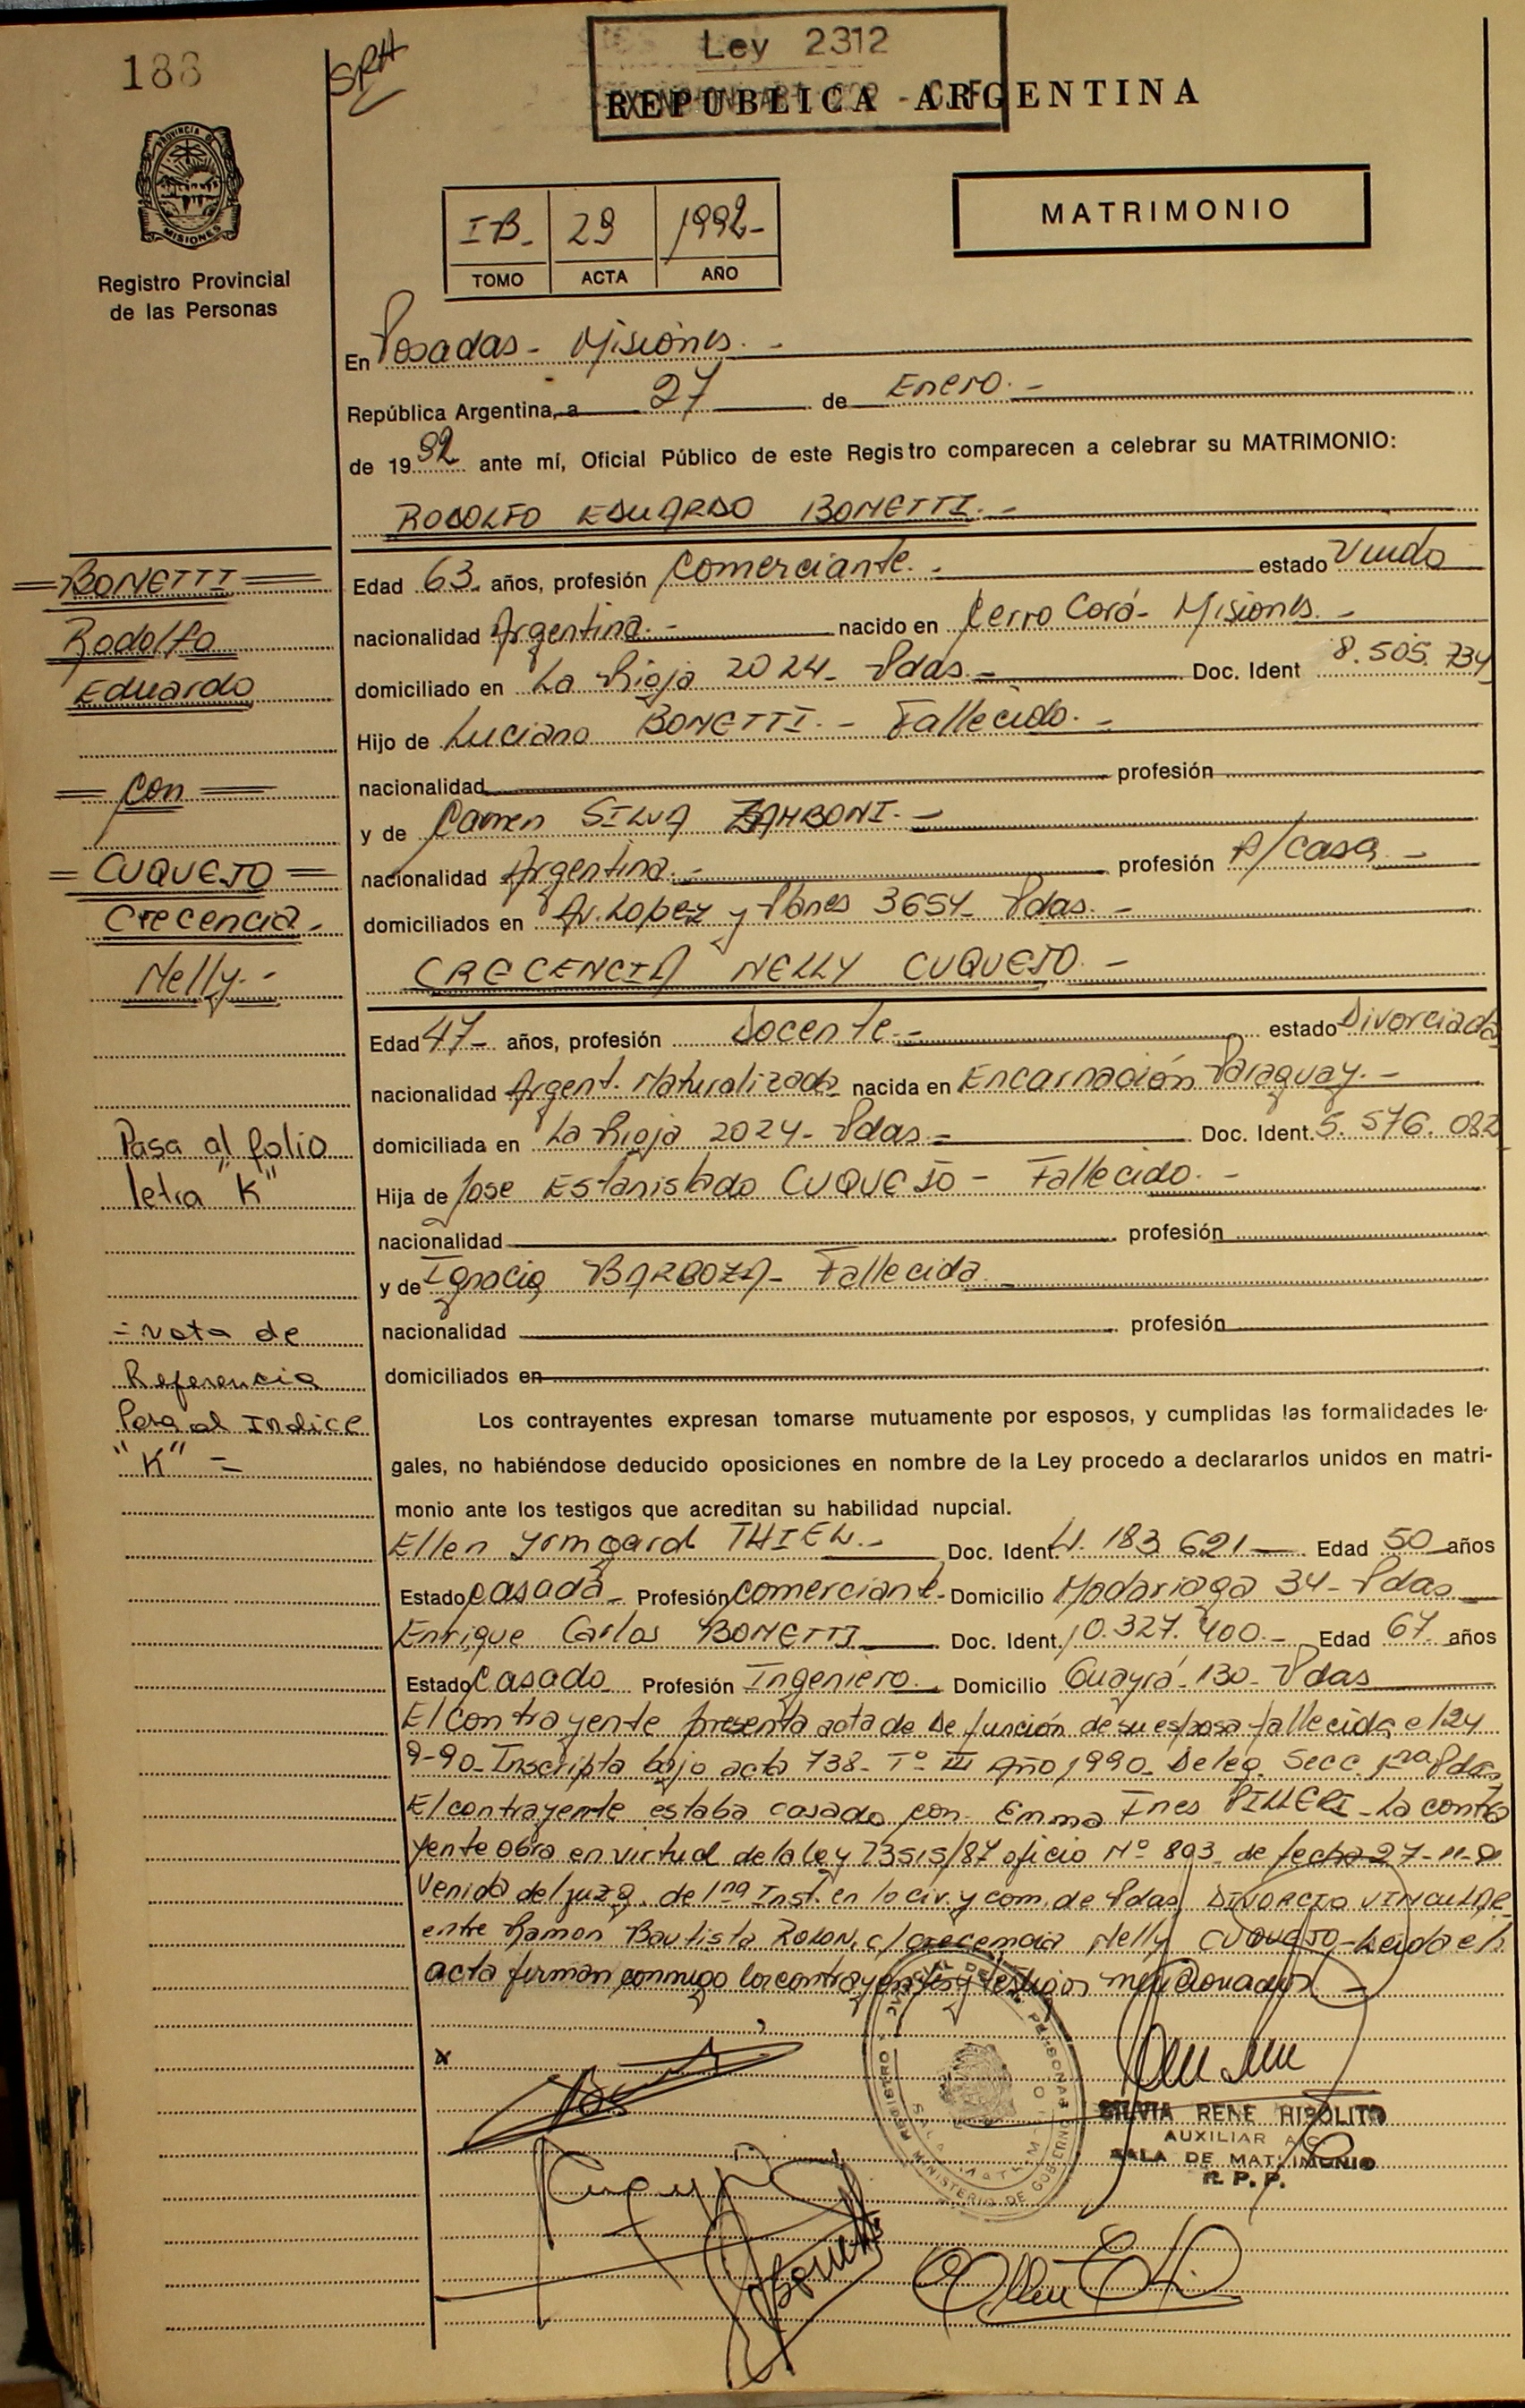 188
SRH
Ley 2312
REPUBLICA ARGENTINA
PROVINCIA DE
MISIONES
Registro Provincial
de las Personas
I-B- 29 1992-
TOMO ACTA AÑO
MATRIMONIO
En Posadas - Misiones. -
República Argentina, a 27 de Enero. -
de 1992 ante mí, Oficial Público de este Registro comparecen a celebrar su MATRIMONIO:
RODOLFO EDUARDO BONETTI. -
BONETTI
Rodolfo
Eduardo
con
CUQUEJO
Crecencia -
Nelly. -
Edad 63. años, profesión Comerciante. - estado Viudo
nacionalidad Argentina. - nacido en Cerro Corá - Misiones. -
domiciliado en La Rioja 2024 - Pdas. - Doc. Ident 8.505.734
Hijo de Luciano BONETTI. - Fallecido. -
nacionalidad profesión
y de Carmen SILVA ZAMBONI. -
nacionalidad Argentina. - profesión A/casa -
domiciliados en Av. Lopez y Planes 3654 - Pdas. -
CRECENCIA NELLY CUQUEJO. -
Edad 47 - años, profesión Docente. - estado Divorciada
nacionalidad Argent. Naturalizada nacida en Encarnación Paraguay. -
domiciliada en La Rioja 2024 - Pdas - Doc. Ident. 5.576.082
Hija de Jose Estanislado CUQUEJO - Fallecido. -
nacionalidad profesión
y de Ignacia BARBOZA - Fallecida
nacionalidad profesión
domiciliados en
Pasa al folio
letra "K"
= Nota de
Referencia
Pasa al Indice
"K" =
Los contrayentes expresan tomarse mutuamente por esposos, y cumplidas las formalidades le-
gales, no habiéndose deducido oposiciones en nombre de la Ley procedo a declararlos unidos en matri-
monio ante los testigos que acreditan su habilidad nupcial.
Ellen Yrmgard THIEL. - Doc. Ident. 4.183.621 - Edad 50 años
Estado casada - Profesión comerciant. - Domicilio Madariaga 34 - Pdas
Enrique Carlos BONETTI Doc. Ident. 10.327.400. - Edad 67 años
Estado Casado Profesión Ingeniero. Domicilio Guayrá - 130 - Pdas
El contrayente presenta acta de Defunción de su esposa fallecida el 24
9-90 - Inscripta bajo acta 738 - T° III Año 1990 - Deleg. Secc. 1ra Pdas
El contrayente estaba casado con - Emma Ines PILLERI - La contra
yente obra en virtud de la ley 23515/87 oficio N° 893 de fecha 27-11-
Venido del juzg. de 1na Inst. en lo civ. y com. de Pdas DIVORCIO VINCULAR
entre Ramon Bautista ROLON c/ crecencia Nelly CUQUEJO - Leida el
acta firman conmigo los contrayentes y testigos mencionados. -
x
SILVIA RENE HIPOLITO
AUXILIAR
SALA DE MATRIMONIO
R. P. P.
MINISTERIO DE GOBIERNO